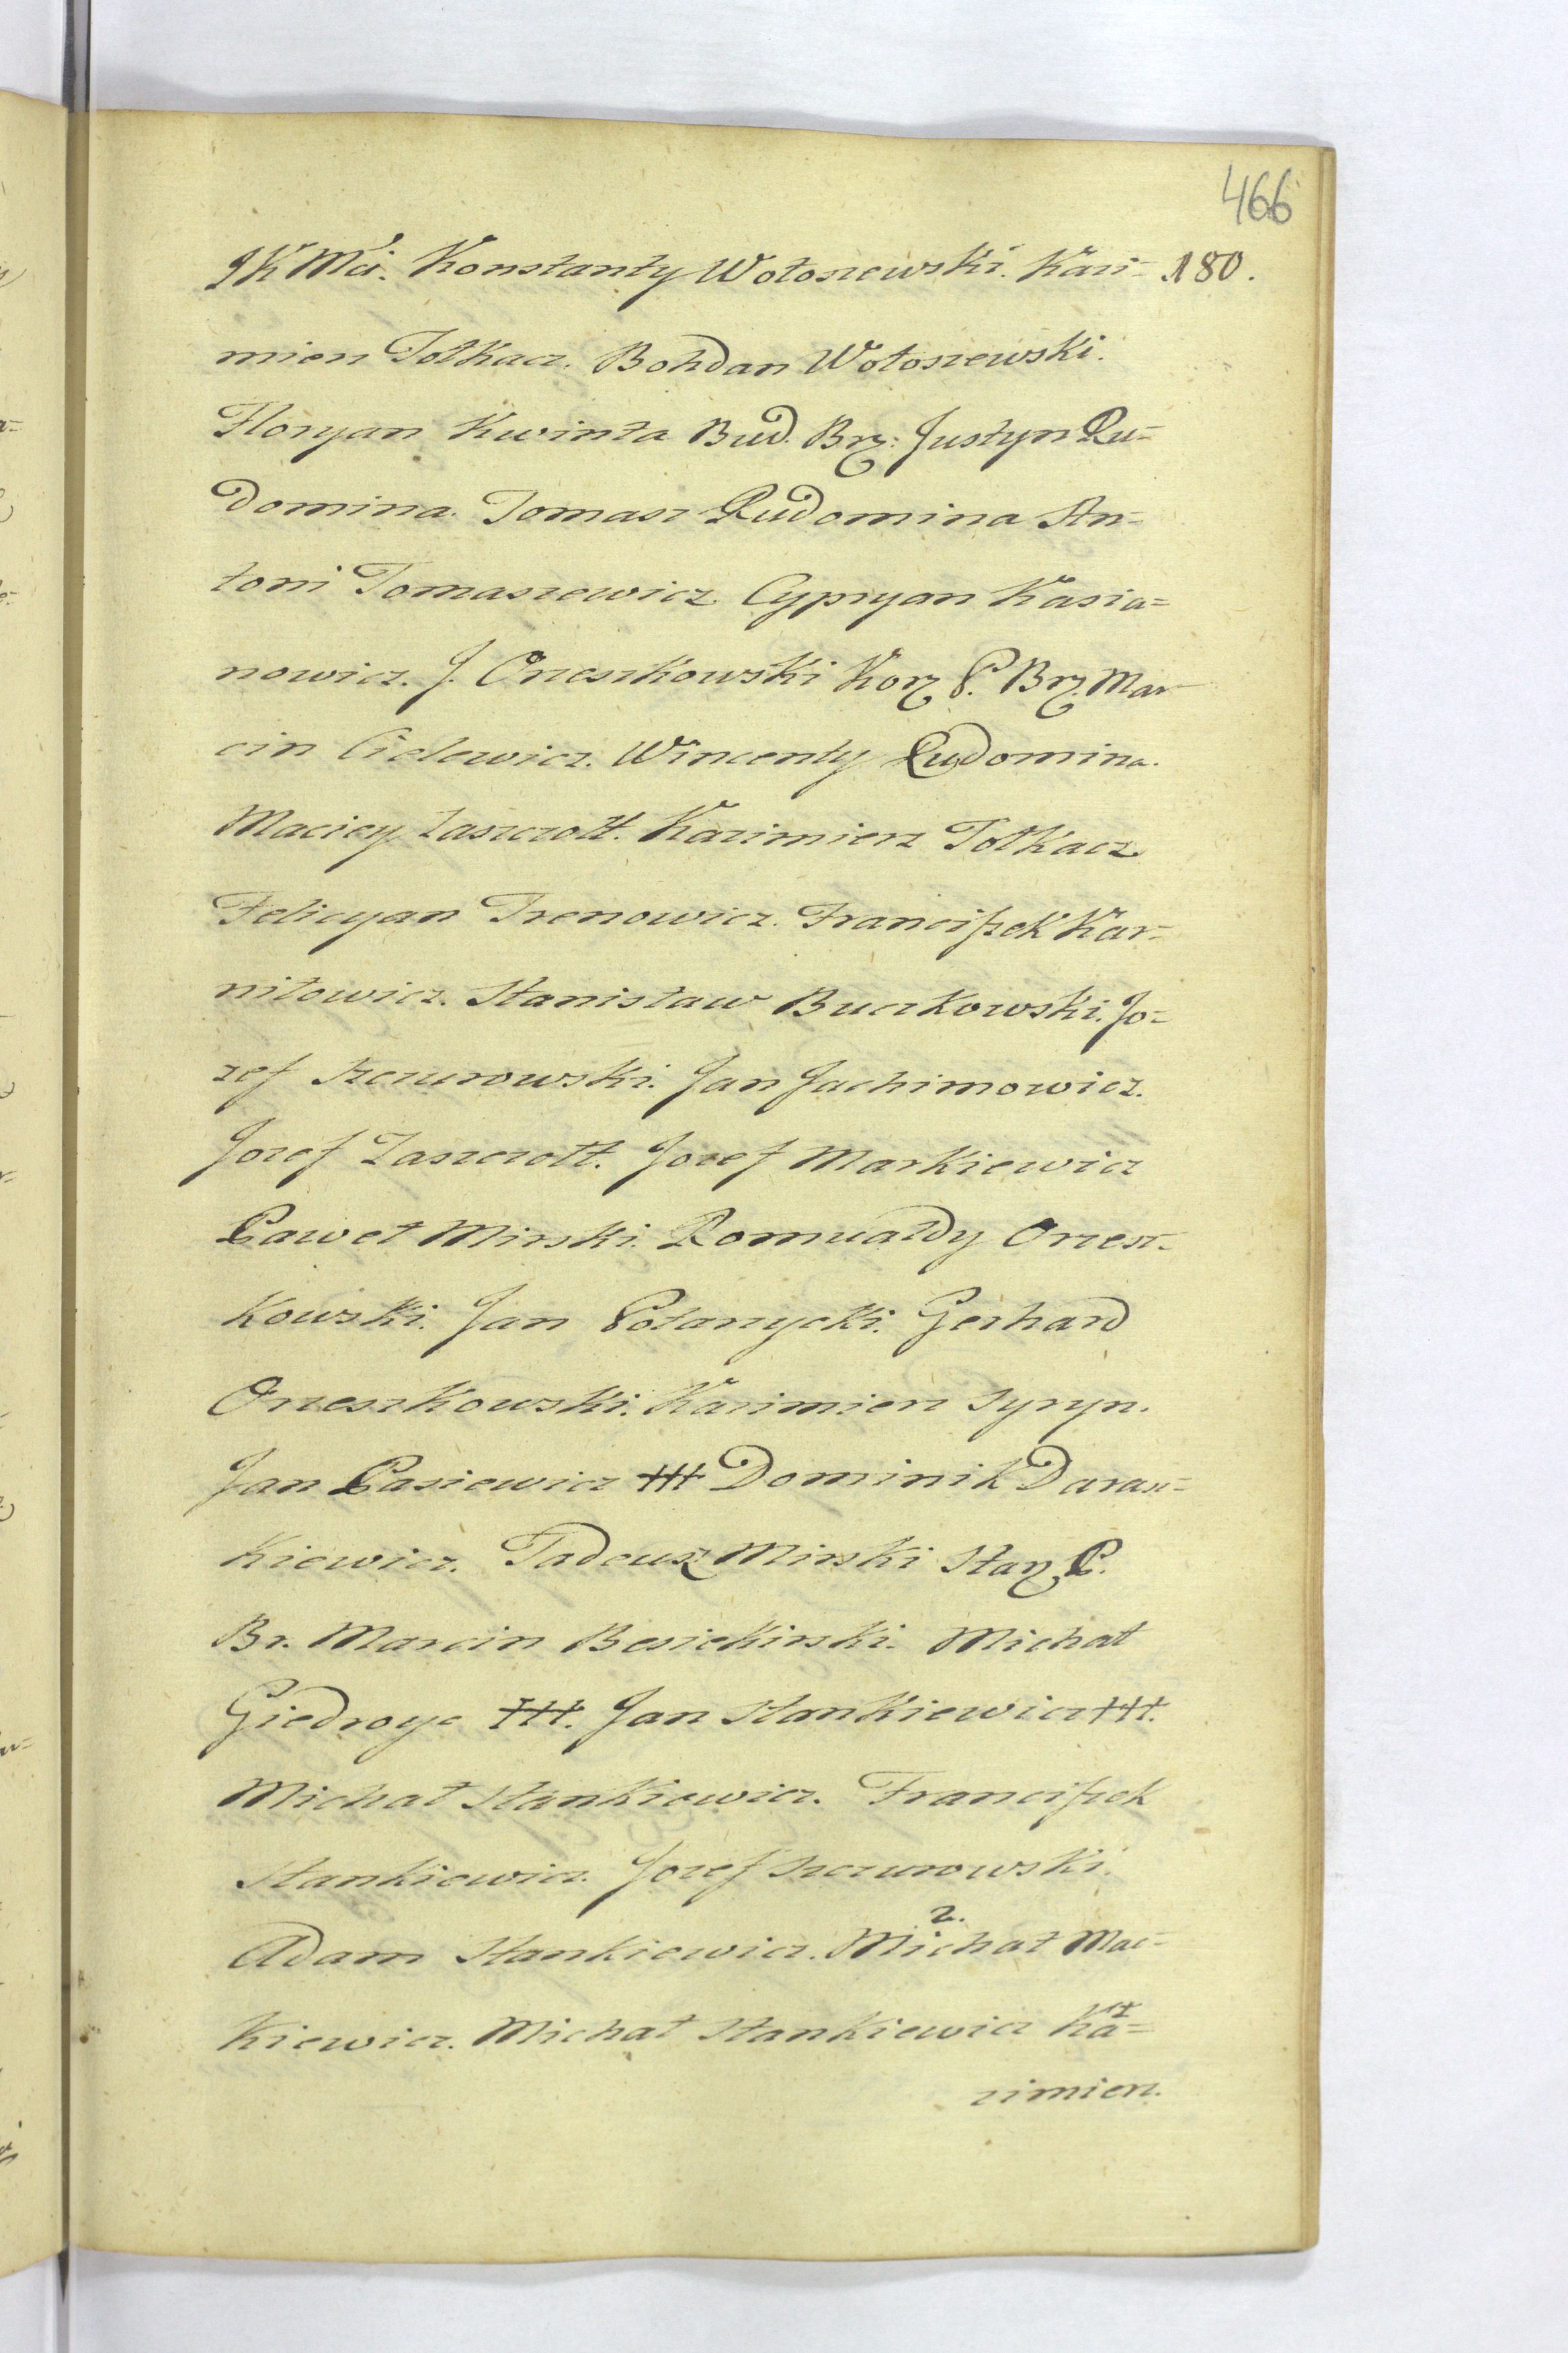 466
JKMci. Konstanty Wołoszewski. Kazi= 180.
mierz Tołkacz. Bohdan Wołoszewski.
Floryan Kwinta Bud. Brz: Justyn Ru=
domina. Tomasz Rudomina An=
toni Tomaszewicz. Cypryan Kasia=
nowicz. J. Orzeszkowski Korz P. Brz. Mar
cin Cielewicz. Wincenty Rudomina.
Maciey Zaszczołt. Kazimierz Tołkacz
Felicyan Trenowicz. Franciszek Kar=
niłowicz. Stanisław Buczkowski. Jo=
zef Szczurowski. Jan Jachimowicz.
Jozef Zaszczołt. Jozef Markiewicz
Paweł Mirski. Romuałdy Orzesz=
kowski. Jan Połanycki. Gerhard
Orzeszkowski. Kazimierz Syryn.
Jan Pasiewicz +++ Dominik Daras=
kiewicz. Tadeusz Mirski Starz P.
Br. Marcin Besiekirski. Michał
Giedroyc +++. Jan Stankiewicz +++.
Michał Stankiewicz. Franciszek
Stankiewicz. Jozef Szczurowski.
2.
Adam Stankiewicz. Michał Mac=
kiewicz. Michał Stankiewicz Ka=
zimierz.